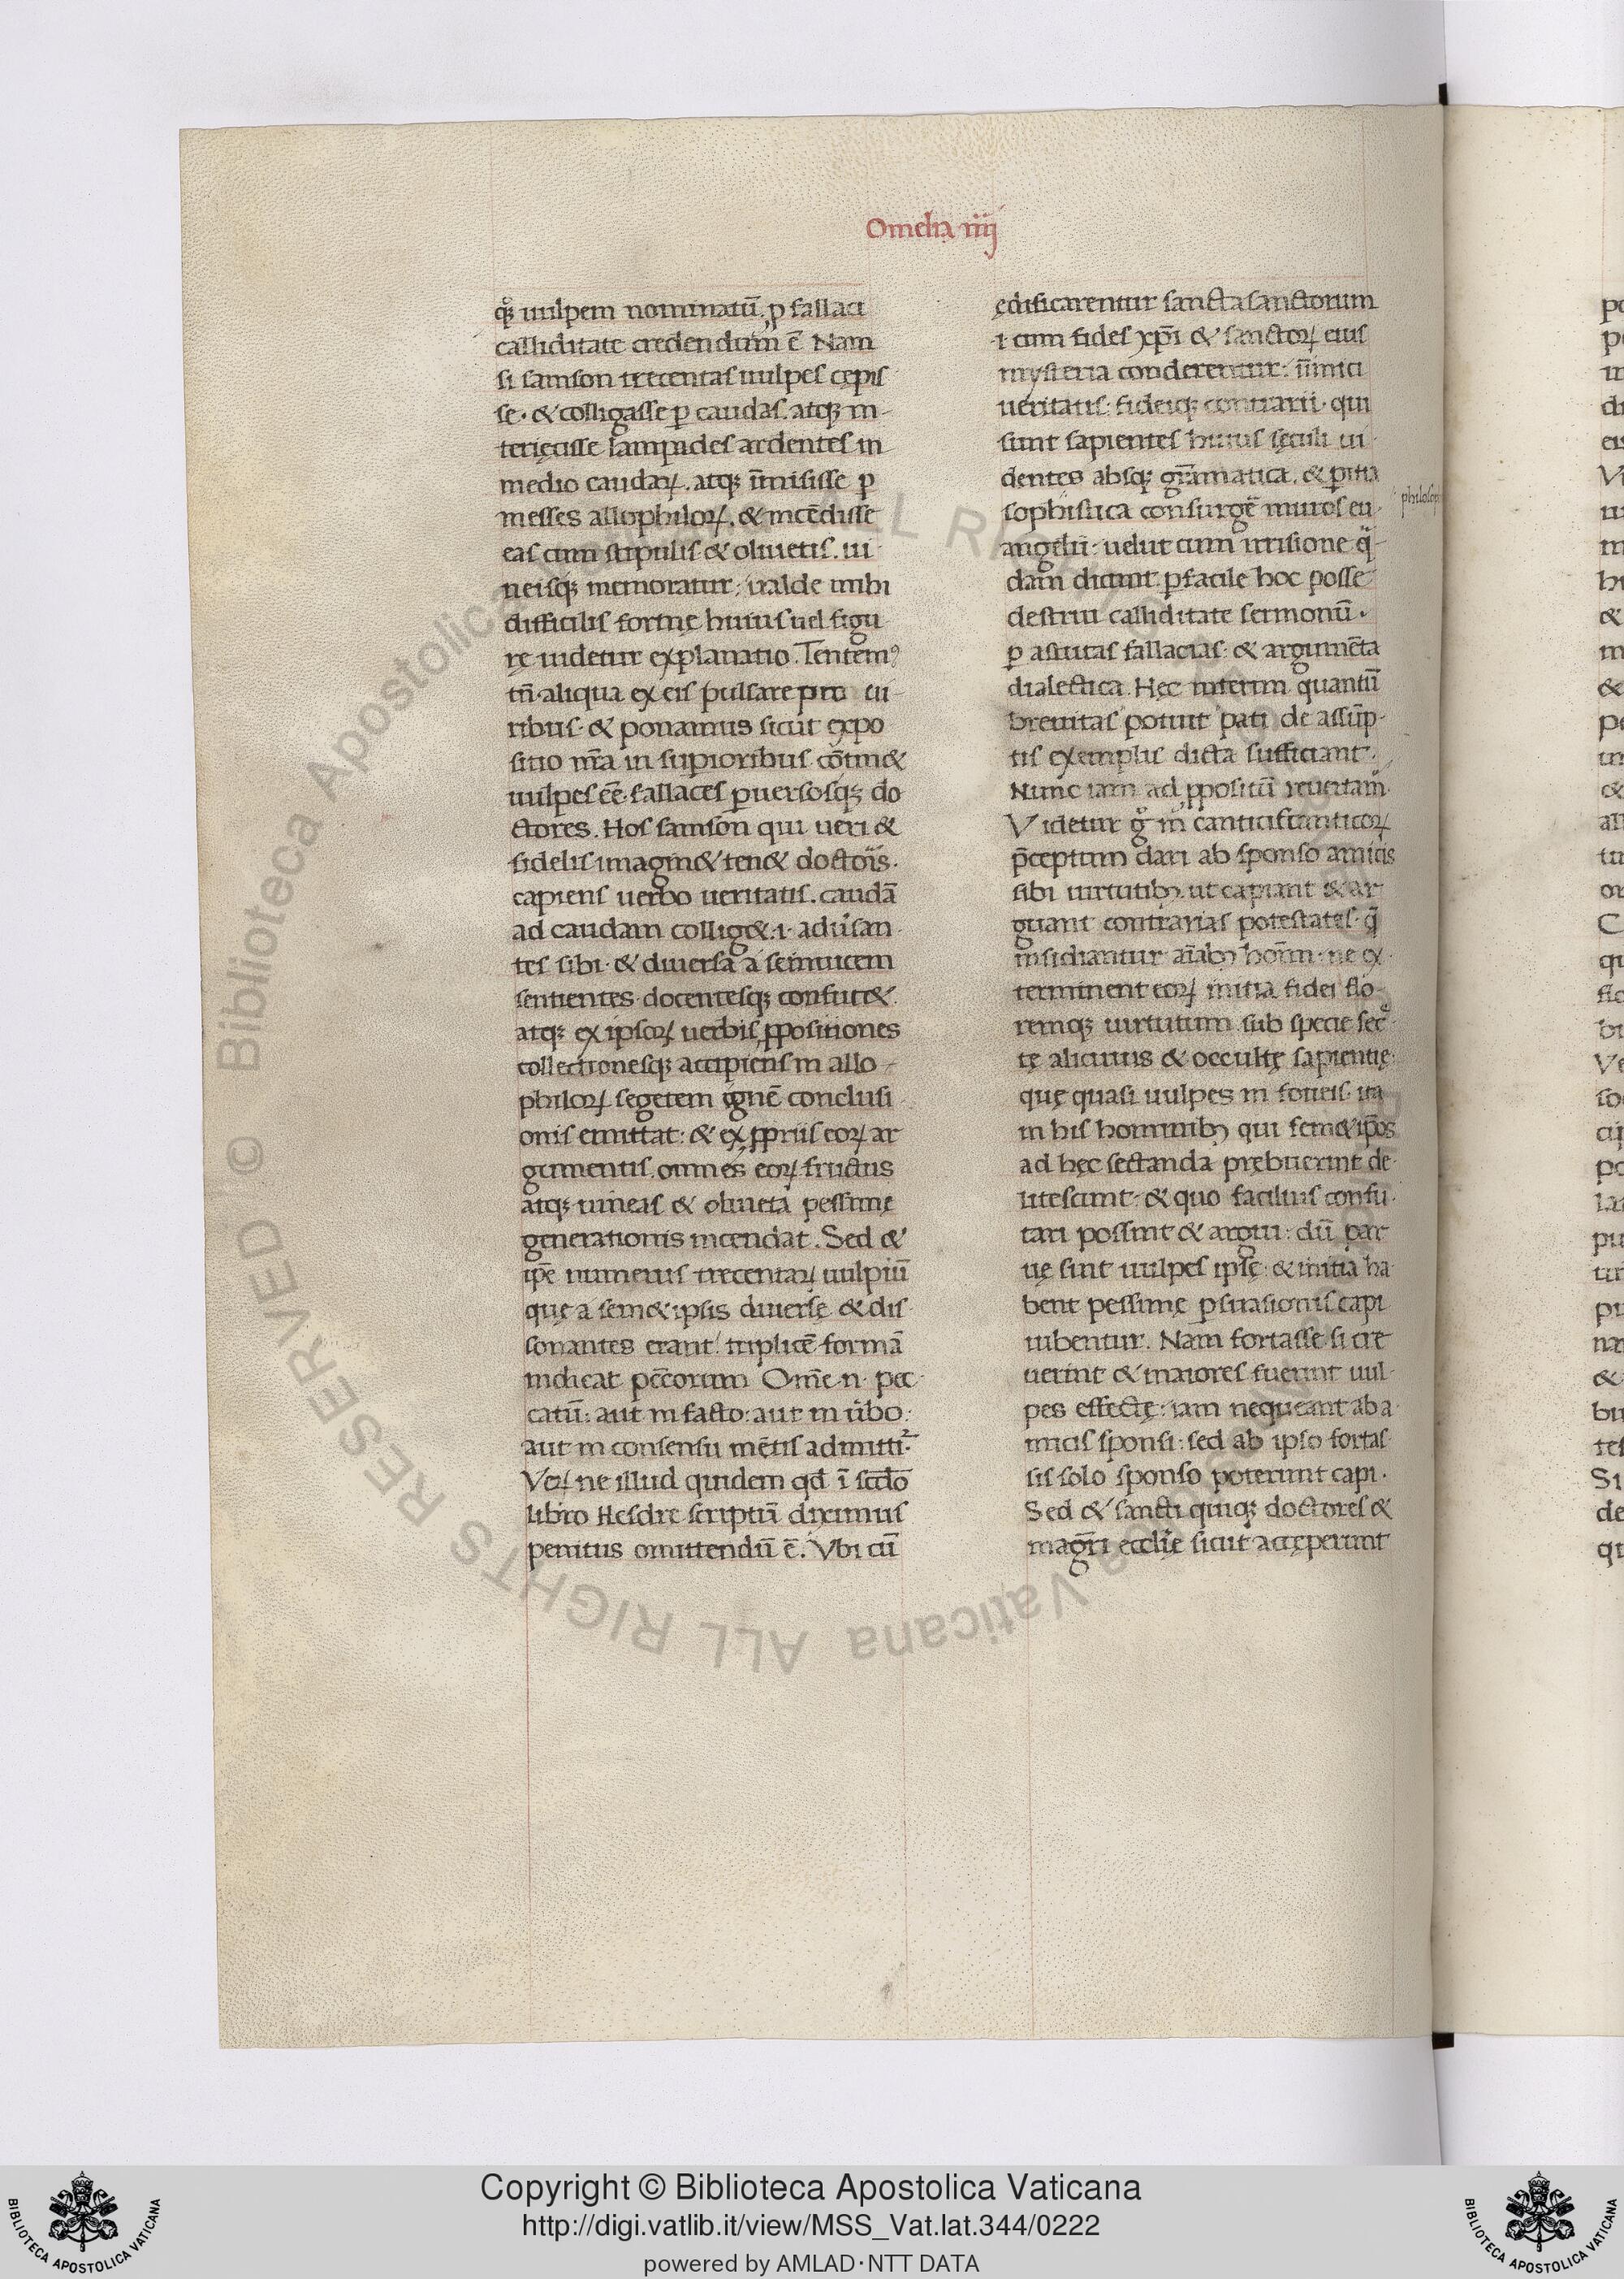 Omelia iiij
quoque uulpem nominatū. ꝓ fallaci
calliditate credendum ē Nam
si samson trecentas uulpes cępis
se· & colligasse ꝑ caudas. atqꝫ in-
teriecisse lampades ardentes in
medio caudaꝝ. atqꝫ īmisisse ꝑ
messes allophiloꝝ. & incēdisse
eas cum stipulis & oliuetis. ui-
neisqꝫ memoratur; ualde mihi
difficilis formę huius uel figu
rę uidetur explanatio. Tentemꝰ
tn̄ aliqua ex eis pulsare pro ui-
ribus· & ponamus sicut expo
sitio nr̄a in suꝑioribus cōtin&
uulpes eē· fallaces ꝑuersosqꝫ do
ctores. Hos samson qui ueri &
fidelis imagin& ten& doctoris.
capiens uerbo ueritatis. caudā
ad caudam collig&·i· aduersan-
tes sibi· & diuersa a seinuicem
sentientes docentesqꝫ confut&
atqꝫ ex ipsoꝝ uerbis ꝓpositiones
collectionesqꝫ accipiens in allo-
philoꝝ segetem ignē conclusi
onis emittat: & ex ꝓpriis eoꝝ ar
gumentis. omnes eoꝝ fructus
atqꝫ uineas & oliueta pessimę
generationis incendat. Sed &
ipē numerus trecentaꝝ uulpiū
quę a sem&ipsis diuersę & dis-
sonantes erant. triplicē formā
indicat pecc̄orum Om̄e n· pec-
catū: aut in facto: aut in ūbo:
aut in consensu mētis admittit᷑
Veꝝ ne illud quidem qd̄ ī scd̄o
libro Hesdre scriptū diximus
penitus omittendū ē. Vbi cū
ędificarentur sancta sanctorum
·i· cum fides xp̄i & sanctoꝝ eius
mysteria conderentur: īnimici
ueritatis: fideiqꝫ contrarii· qui
sunt sapientes huius sęculi ui-
dentes absqꝫ grāmatica. & ꝑitia
sophistica consurgē muros eu-
angelii· uelut cum irrisione qͣ-
dam dicunt. ꝑfacile hoc posse
destrui calliditate sermonū·
ꝑ astutas fallacias· & argumēta
dialectica. Hęc interim quantū
breuitas potuit pati de assūp-
tis exemplis dicta sufficiant·
Nunc iam ad ꝓpositū reuertamur
Videtur gͦ in cantici canticoꝝ
p̄ceptum dari ab sponso amicis
sibi uirtutibꝫ. ut capiant & ar
guant contrarias potestates· qͣ
insidiantur aīabꝫ hoīm· ne ex-
terminent eoꝝ initia fidei flo-
remqꝫ uirtutum sub specie secre-
tę alicuius & occultę sapientię
quę quasi uulpes in foueis· ita
in his hominibꝫ qui sem&ip̄os
ad hęc sectanda prębuerint de-
litescunt· & quo facilius confu-
tari possint & argui: dū par
uę sint uulpes ipsę: & initia ha-
bent pessimę ꝑsuasionis capi
iubentur. Nam fortasse si cre
uerint & maiores fuerint uul-
pes effectę: iam nequeant ab a-
micis sponsi: sed ab ipso fortas-
sis solo sponso poterunt capi·
Sed & sancti quiqꝫ doctores &
magr̄i ecclię sicut accęperunt